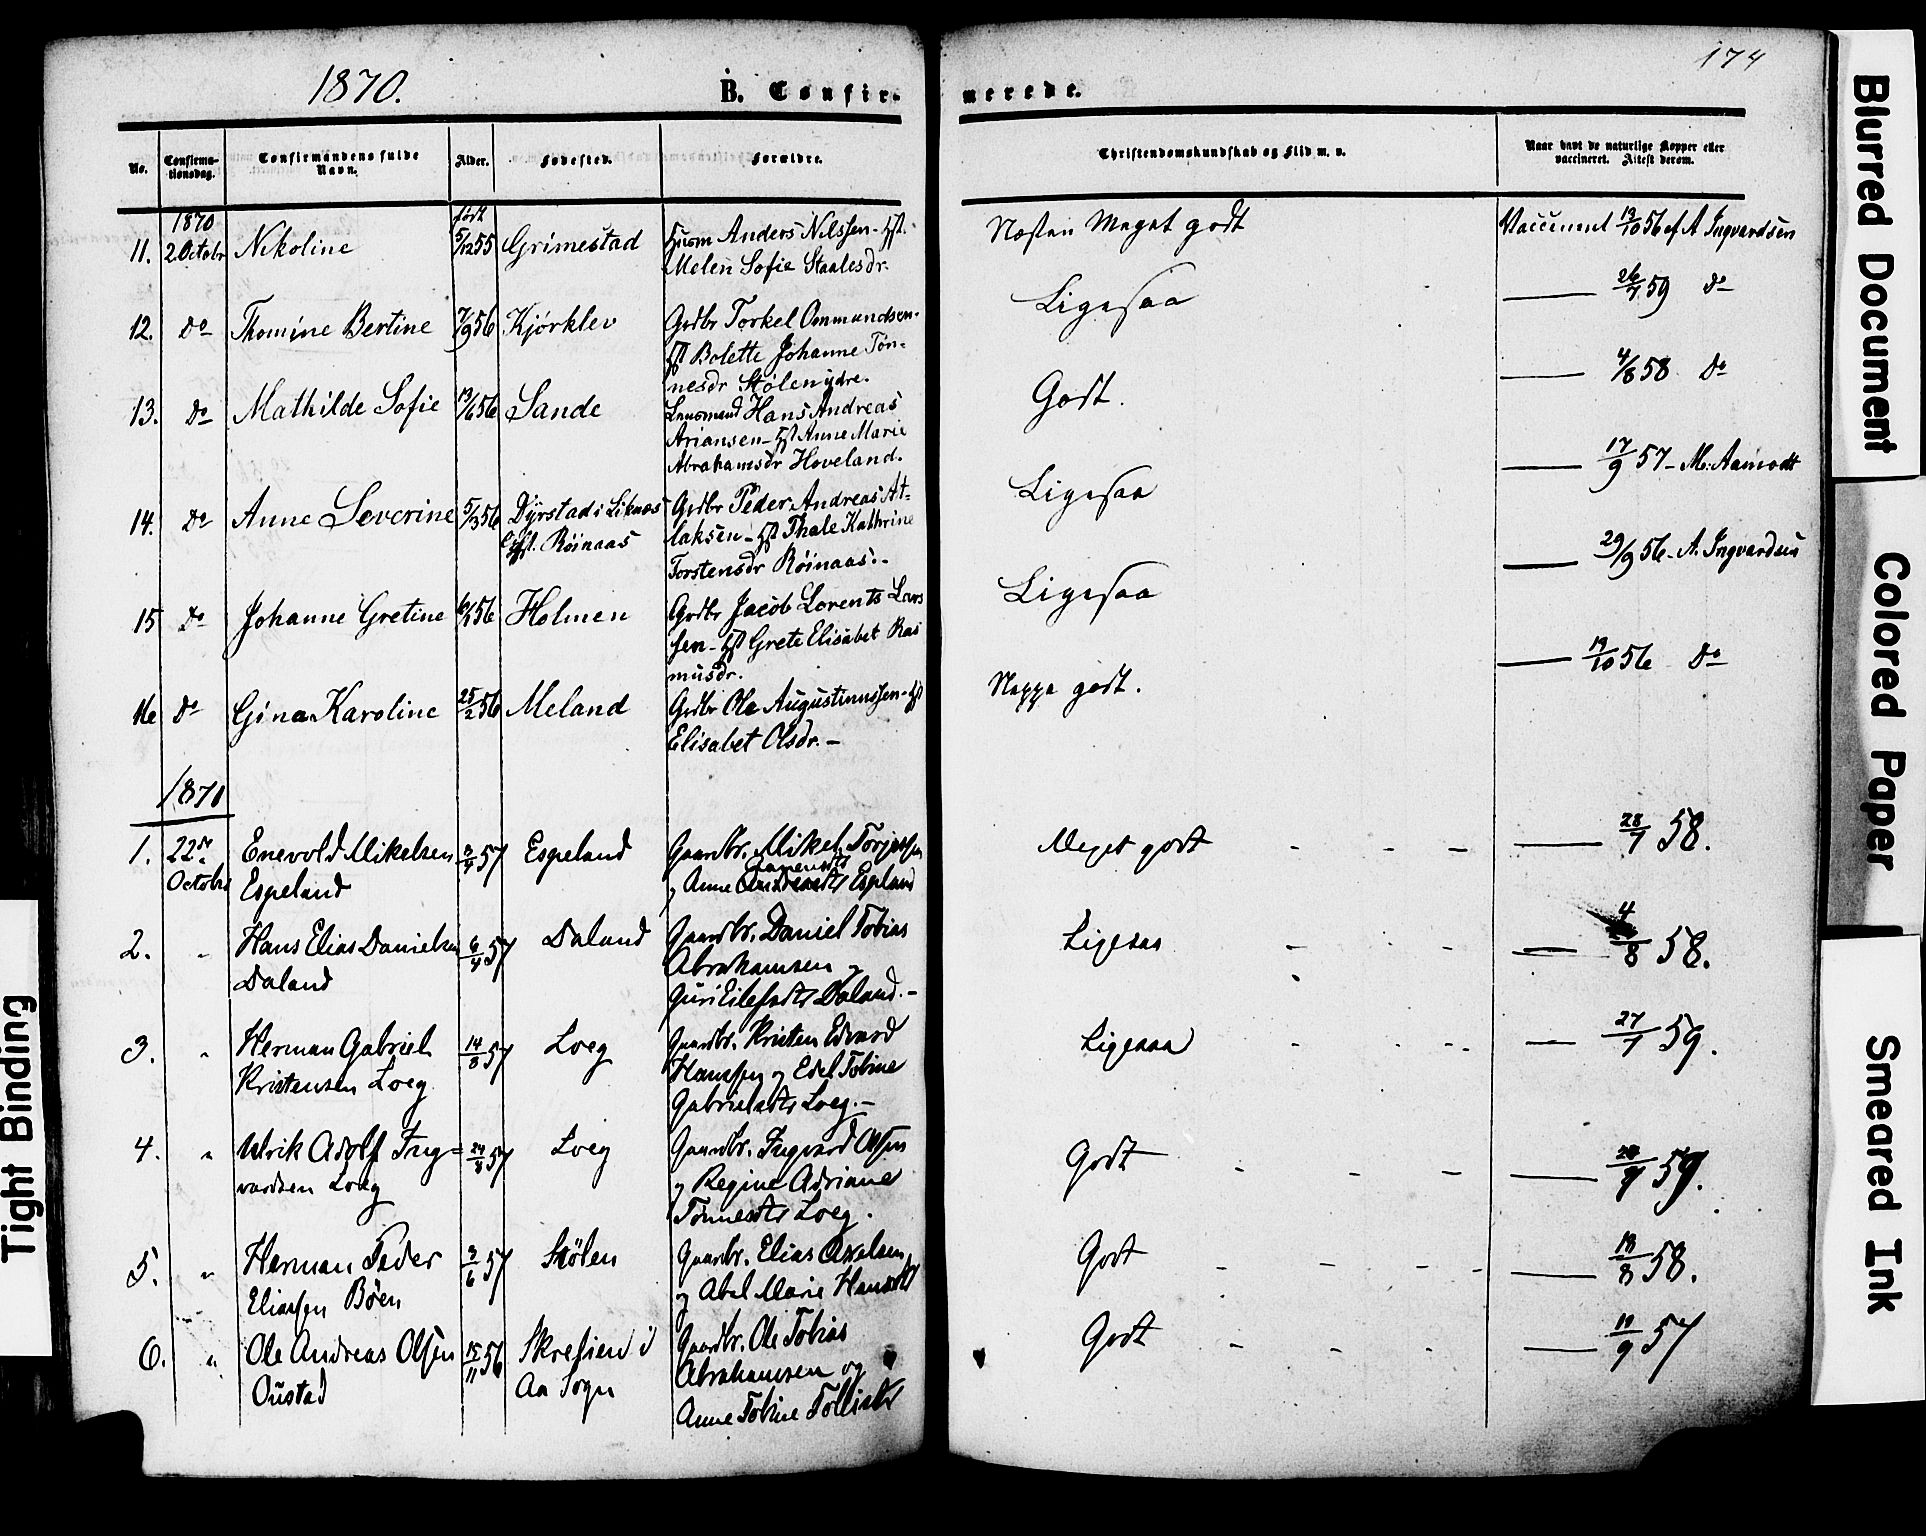 174
1870.
B. Confirmerede.
No.
Confirmationsdag.
Confirmandens fulde Navn.
Alder.
Fødested.
Forældre.
Christendomskundskab og Flid m. v.
Naar havt de naturlige Kopper eller vaccineret. Attest derom.
1870
født
11. 2 Octobr Nikoline 5/12 55 Grimestad Huusm Anders Nilssen - Hst.
Melen Sofie Staalesdr.
Næsten Meget godt
Vaccineret 19/10 56 af A Ingvardsen
12. Do Thomine Bertine 7/9 56 Kjörklev Grdbr Torkel Ommundsen -
Hst Bolette Johanne Tön-
nesdr Stölenydre.
Ligesaa
26/7 59 Do
13. Do Mathilde Sofie 13/6 56 Sande Lensmand Hans Andreas
Ariansen - Hst Anne Marie
Abrahamsdr Hoveland.
Godt.
4/8 58 Do
14. Do Anne Severine 5/3 56 Dyrstad i Liknes Grdbr Peder Andreas At-
Röinaas laksen - Hst Thale Kathrine
Torstensdr Röinaas.-
Ligesaa
17/9 57 - M. Aamodt
15 Do Johanne Gretine 56 Holmen Grdbr Jacob Lorents Lars
sen - Hst Grete Elisabet Ras
musdr.
Ligesaa
29/9 56 - A. Ingvardsen
16 Do Gina Karoline 25/2 56 Meland Grdbr Ole Augustinussen - Hst
Elisabet Olsdr. -
Noget godt.
19/10 56 Do
1871
1. 22de Enevold Mikelsen 57 Espeland Gaardbr. Mikel Torjussen
Octobr Espeland og Anne Espeland
Meget godt - - -
28/7 58.
2. " Hans Elias Danielsen 6/4 57 Daland Gaardbr. Daniel Tobias
Daland Abrahamsen og
Guri Eilefsdtr Daland. -
Ligesaa - -
4/8 58.
3. " Herman Gabriel 14/8 57 Loeg Gaardbr. Kristen Edvard
Kristensen Loeg Hanssen og Edel Tobine
Gabrielsdtr Loeg. -
Ligesaa - - -
27/7 59.
4. " Ulrik Adolf Ing= 57 Loeg Gaardbr. Ingvard Olsen
vardsen Loeg og Regine Adriane
Tönnesdtr Loeg.
Godt - - -
59.
5. " Herman Peder 3/6 57 Stölen Gaardbr. Elias Axelsen
Eliassen Böen og Abel Marie Hansdtr
Godt - - - -
18/8 58.
6. " Ole Andreas Olsen 15/11 56 Skreland i Gaardbr. Ole Tobias
Oustad Aa Sogn Abrahamsen og
Anne Tobine Tollisdtr
Godt - - -
19/9 57
Blurred Document
Colored Paper
Smeared Ink
Tight Binding